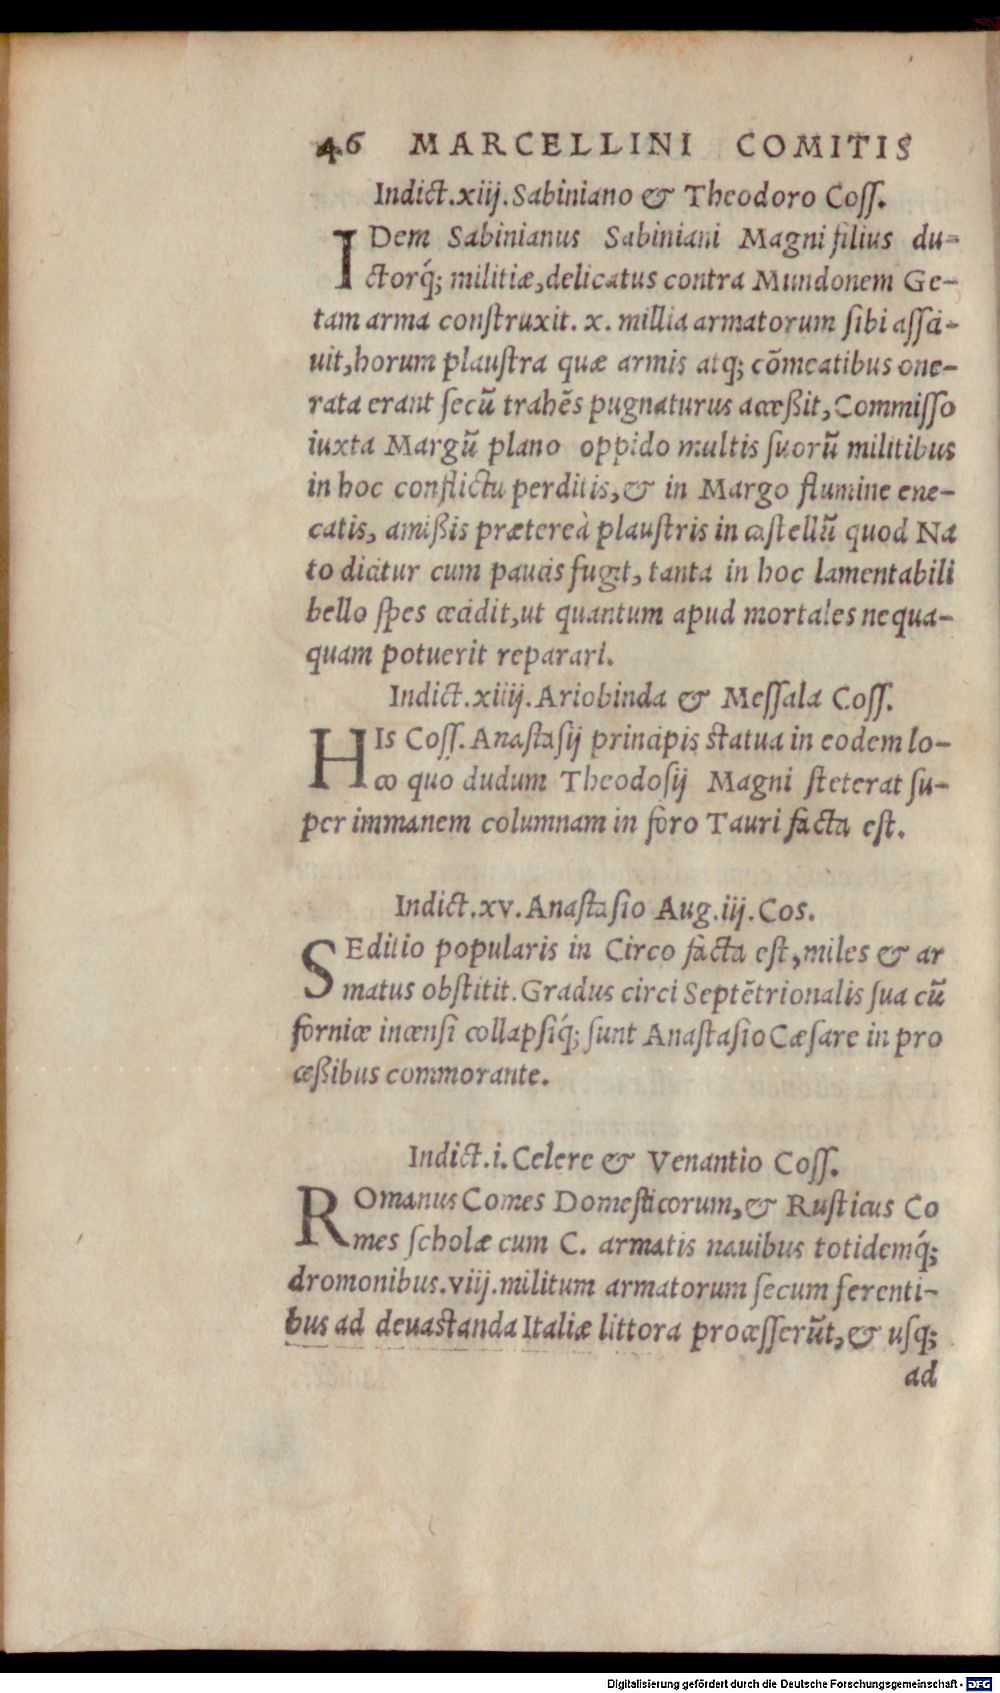 46 MARCELLINI COMITIS
Indict.xiij.Sabiniano & Theodoro Coſſ.
IDem Sabinianus Sabiniani Magni filius du-
ctorq́; militiæ,delicatus contra Mundonem Ge-
tam arma conſtruxit. x. millia armatorum ſibi aſſci-
uit,horum plauſtra quæ armis atq; cōmeatibus one-
rata erant ſecū trahēs pugnaturus acceßit,Commiſſo
iuxta Margū plano oppido multis ſuorū militibus
in hoc conflictu perditis,& in Margo flumine ene-
catis, amißis prætereà plauſtris in caſtellū quod Na
to dicitur cum paucis fugit, tanta in hoc lamentabili
bello ſpes cecidit,ut quantum apud mortales nequa-
quam potuerit reparari.
Indict.xiiij.Ariobinda & Meſſala Coſſ.
HIs Coſſ.Anaſtaſij principis ſtatua in eodem lo-
co quo dudum Theodoſij Magni ſteterat ſu-
per immanem columnam in foro Tauri facta eſt.
Indict.xv.Anaſtaſio Aug.iij.Cos.
SEditio popularis in Circo facta eſt,miles & ar
matus obſtitit.Gradus circi Septētrionalis ſua cū
fornice incenſi collapſiq́; ſunt Anaſtaſio Cæſare in pro
ceßibus commorante.
Indict.i.Celere & Venantio Coſſ.
ROmanus Comes Domeſticorum,& Ruſticus Co
mes ſcholæ cum C. armatis nauibus totidemq́;
dromonibus.viij.militum armatorum ſecum ferenti-
bus ad deuastanda Italiæ littora proceſſerūt,& uſq;
ad
Digitalisierung gefördert durch die Deutsche Forschungsgemeinschaft - DFG